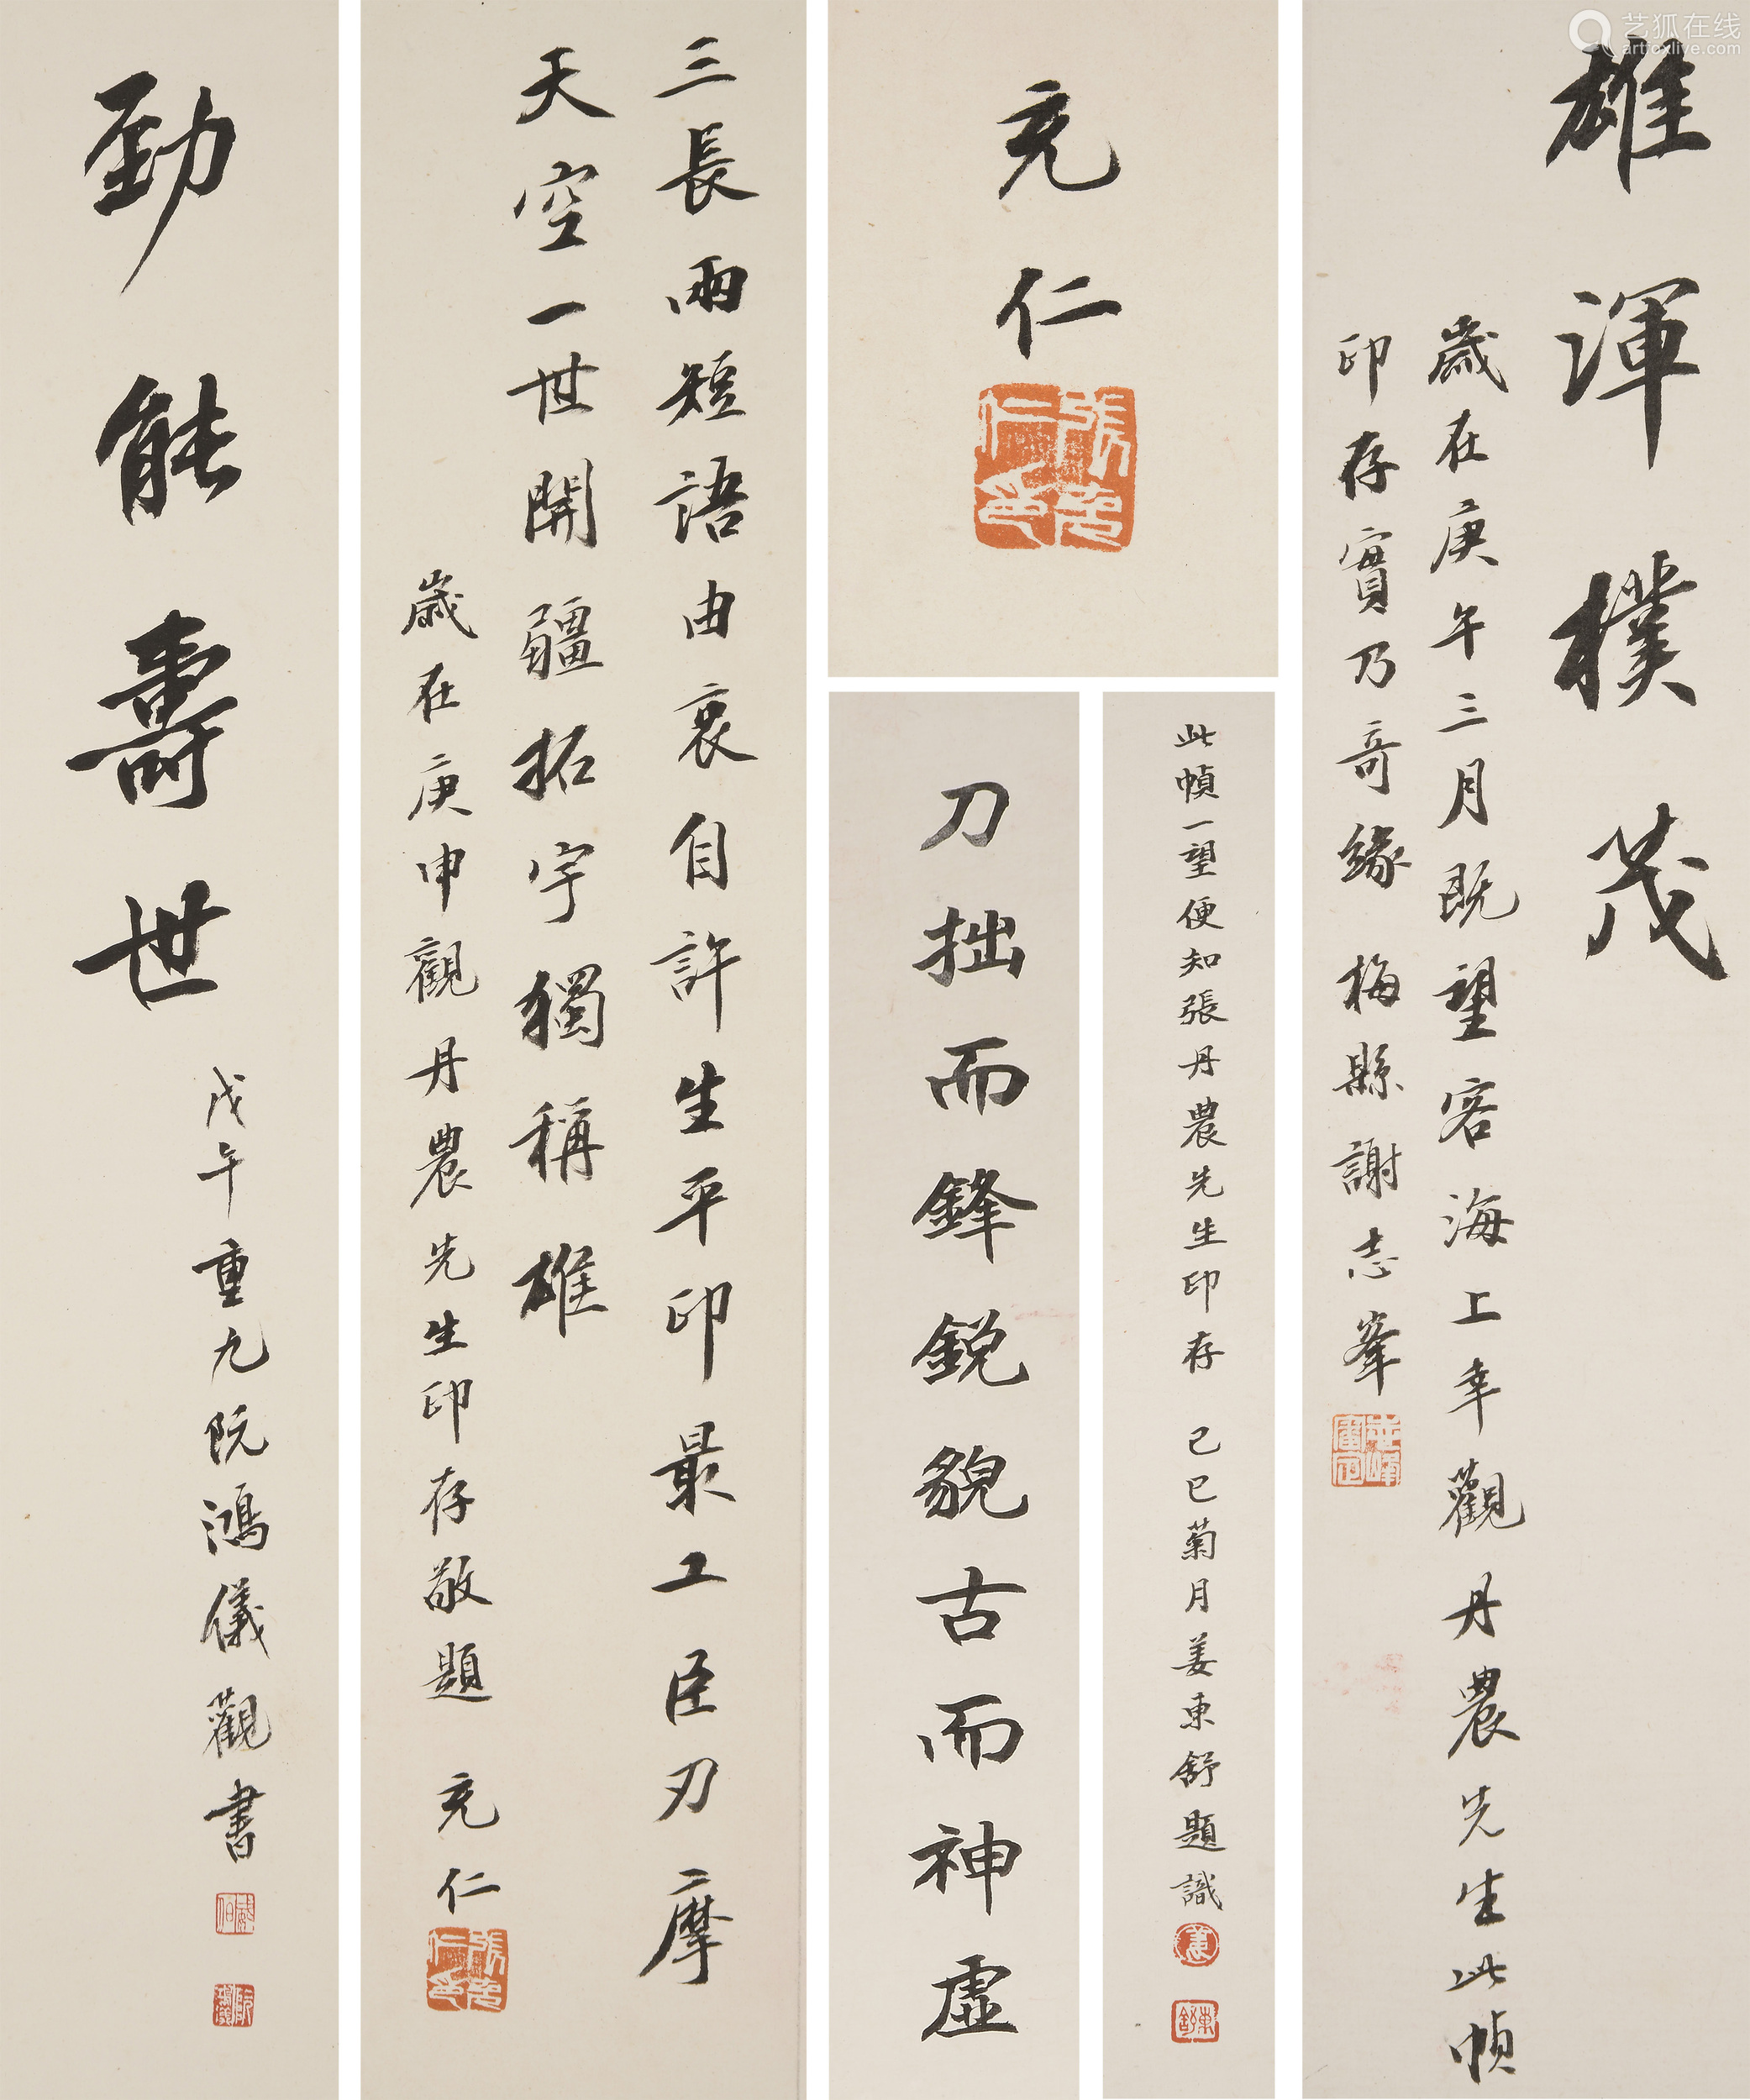 艺狐在线
artfoxlive.com
雄渾樸茂
歲在庚午三月既望客海上幸觀丹農先生此幀
印存實乃奇緣 梅縣謝志峯
充仁
張充仁印
此幀一望便知張丹農先生印存 己巳菊月姜東舒題識
東舒
刀拙而鋒銳貌古而神虛
三長兩短語由衷自許生平印最工臣刃摩
天空一世開疆拓宇獨稱雄
歲在庚申觀丹農先生印存敬題 充仁
張充仁印
勁能壽世
戊午重九阮鴻儀觀書